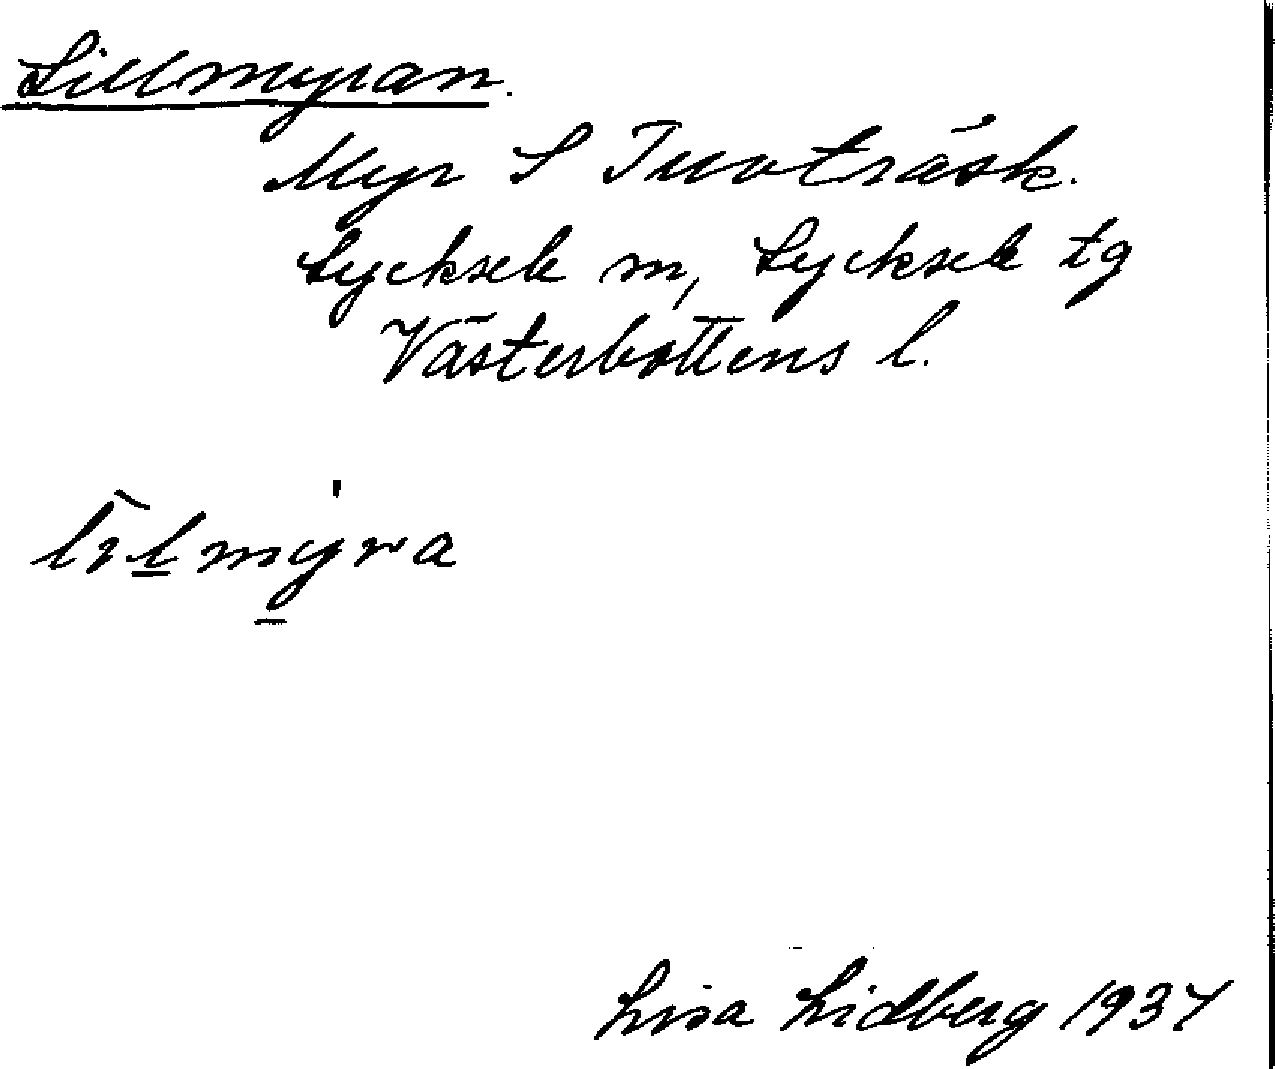 Lillmyran.
Myr S Tuvträsk.
Lycksele m, Lycksele tg
Västerbottens l.
Lisa Lidberg 1937